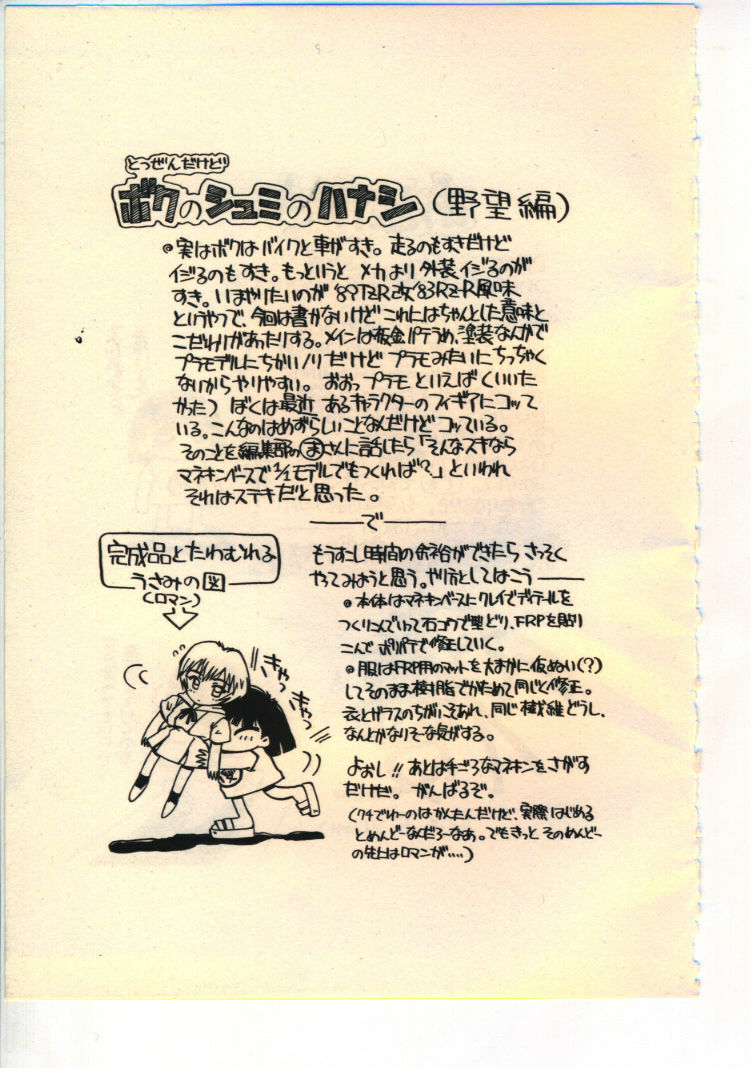 とつぜんだけど
ボクのシュミのハナシ(野望編)
◎実はボクはバイクと車がすき。走るのもすきだけど
イジるのもすき。もっというと メカより外装イジるのが
すき。いまやりたいのが '89TZR改'83RZ-R風味
というやつで、今回は書かないけど これにはちゃんとした意味と
こだわりがあったりする。メインは板金パテうめ、塗装なんかで
プラモデルにちかいノリだけど プラモみたいにちっちゃく
ないからやりやすい。 おおっプラモ といえば(いいた
かった) ぼくは最近 あるキャラクターのフィギアにコッて
いる。こんなのはめずらしいことなんだけどコッている。
そのことを編集部のまさんに話したら「そんなスキなら
マネキンベースで1/1モデルでもつくれば?」といわれ
それはステキだと思った。
で
完成品とたわむれる
うさみの図
(ロマン)
もうすこし時間の余裕ができたら さっそく
やってみようと思う。やり方としてはこう
◎本体はマネキンベースにクレイでディテールを
つくりこんでいって石コウで型どり、FRPを貼り
こんで ポリパテで修正していく。
◎服はFRP用のマットを大まかに仮ぬい(?)
してそのまま樹脂でかためて同じく修正。
衣とガラスのちがいこそあれ、同じ繊維どうし、
なんとかなりそーな気がする。
よおし!! あとは手ごろなマネキンをさがす
だけだ。 がんばるぞ。
(クチでゆーのはかんたんだけど、実際はじめる
とめんどーなんだろーなあ。でもきっと そのめんどー
の先にはロマンが‥‥)
きゃっ
きゃっ